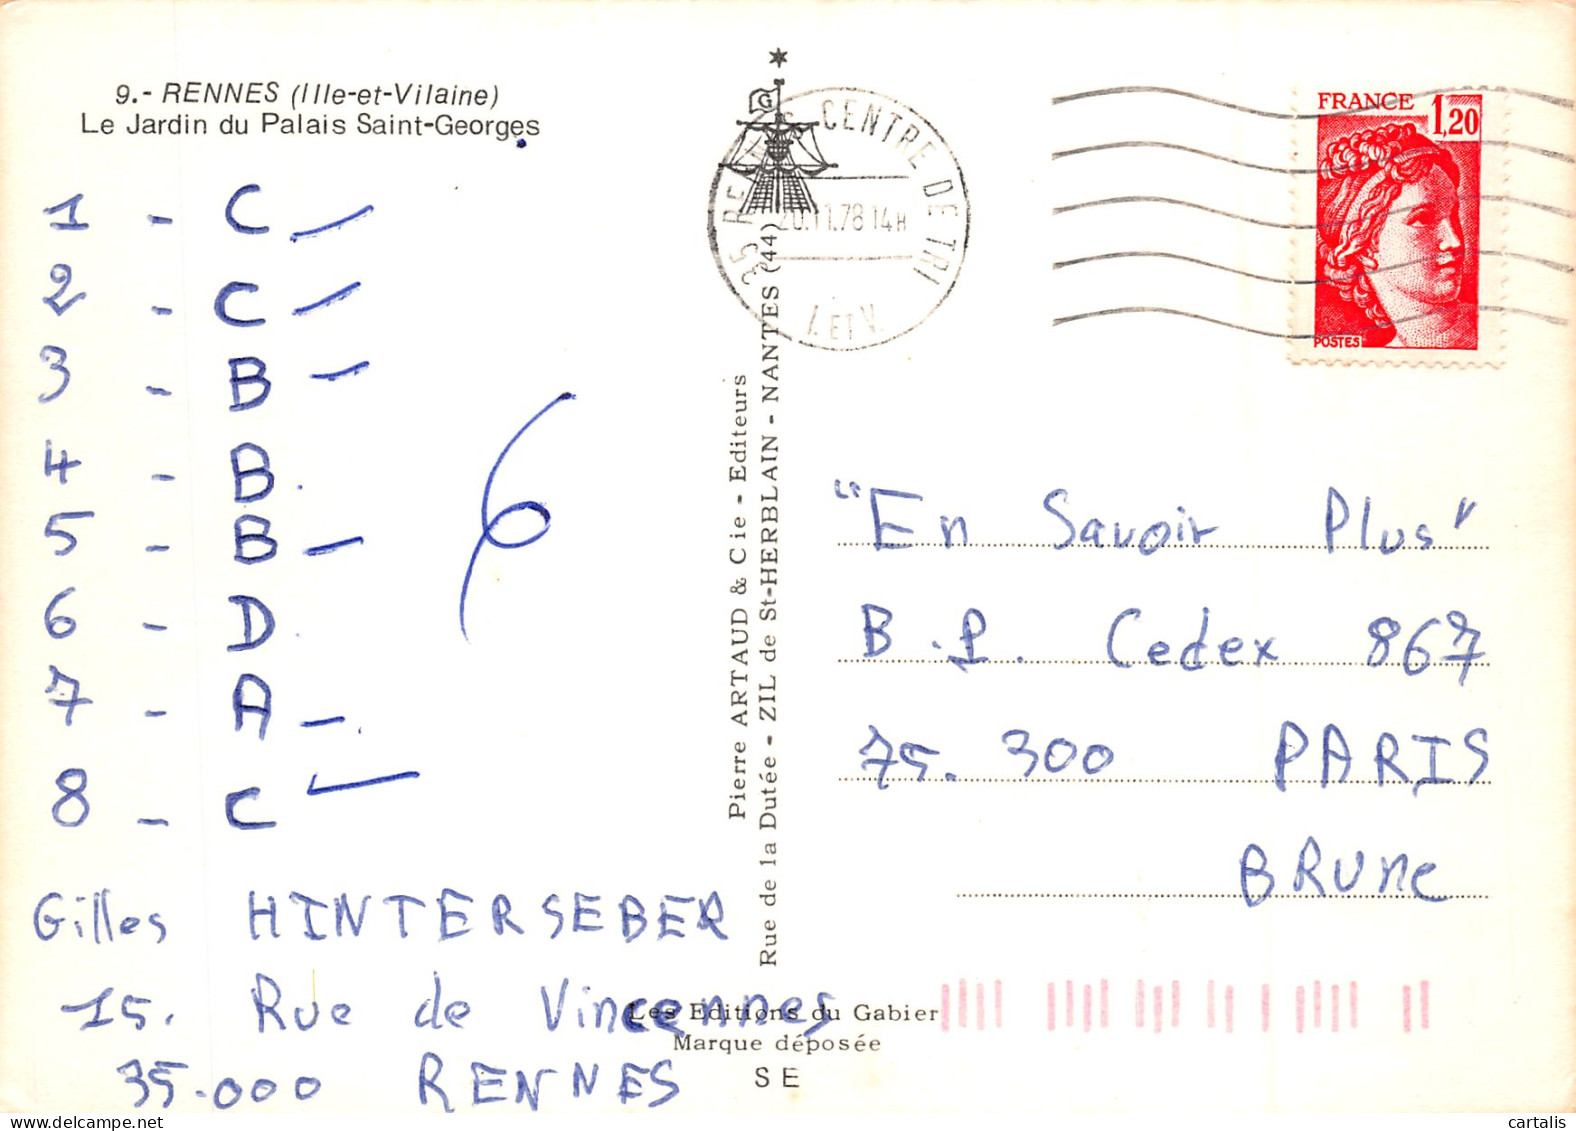 9.- RENNES (Ille-et-Vilaine)
Le Jardin du Palais Saint-Georges
1 - C
2 - C
3 - B
4 - B.
5 - B
6 - D.
7 - A
8 - C
6
Gilles HINTERSEBER
15. Rue de Vincennes
35.000 RENNES
Pierre ARTAUD & Cie - Editeurs
Rue de la Dutée - ZIL de St-HERBLAIN - NANTES (44)
Les Editions du Gabier
Marque déposée
SE
G
35 RENNES CENTRE DE TRI
20.11.78 14H
I. ET V.
FRANCE 1,20
POSTES
"En Savoir Plus"
B.P. Cedex 867
75.300 PARIS
BRUNE
cartalis